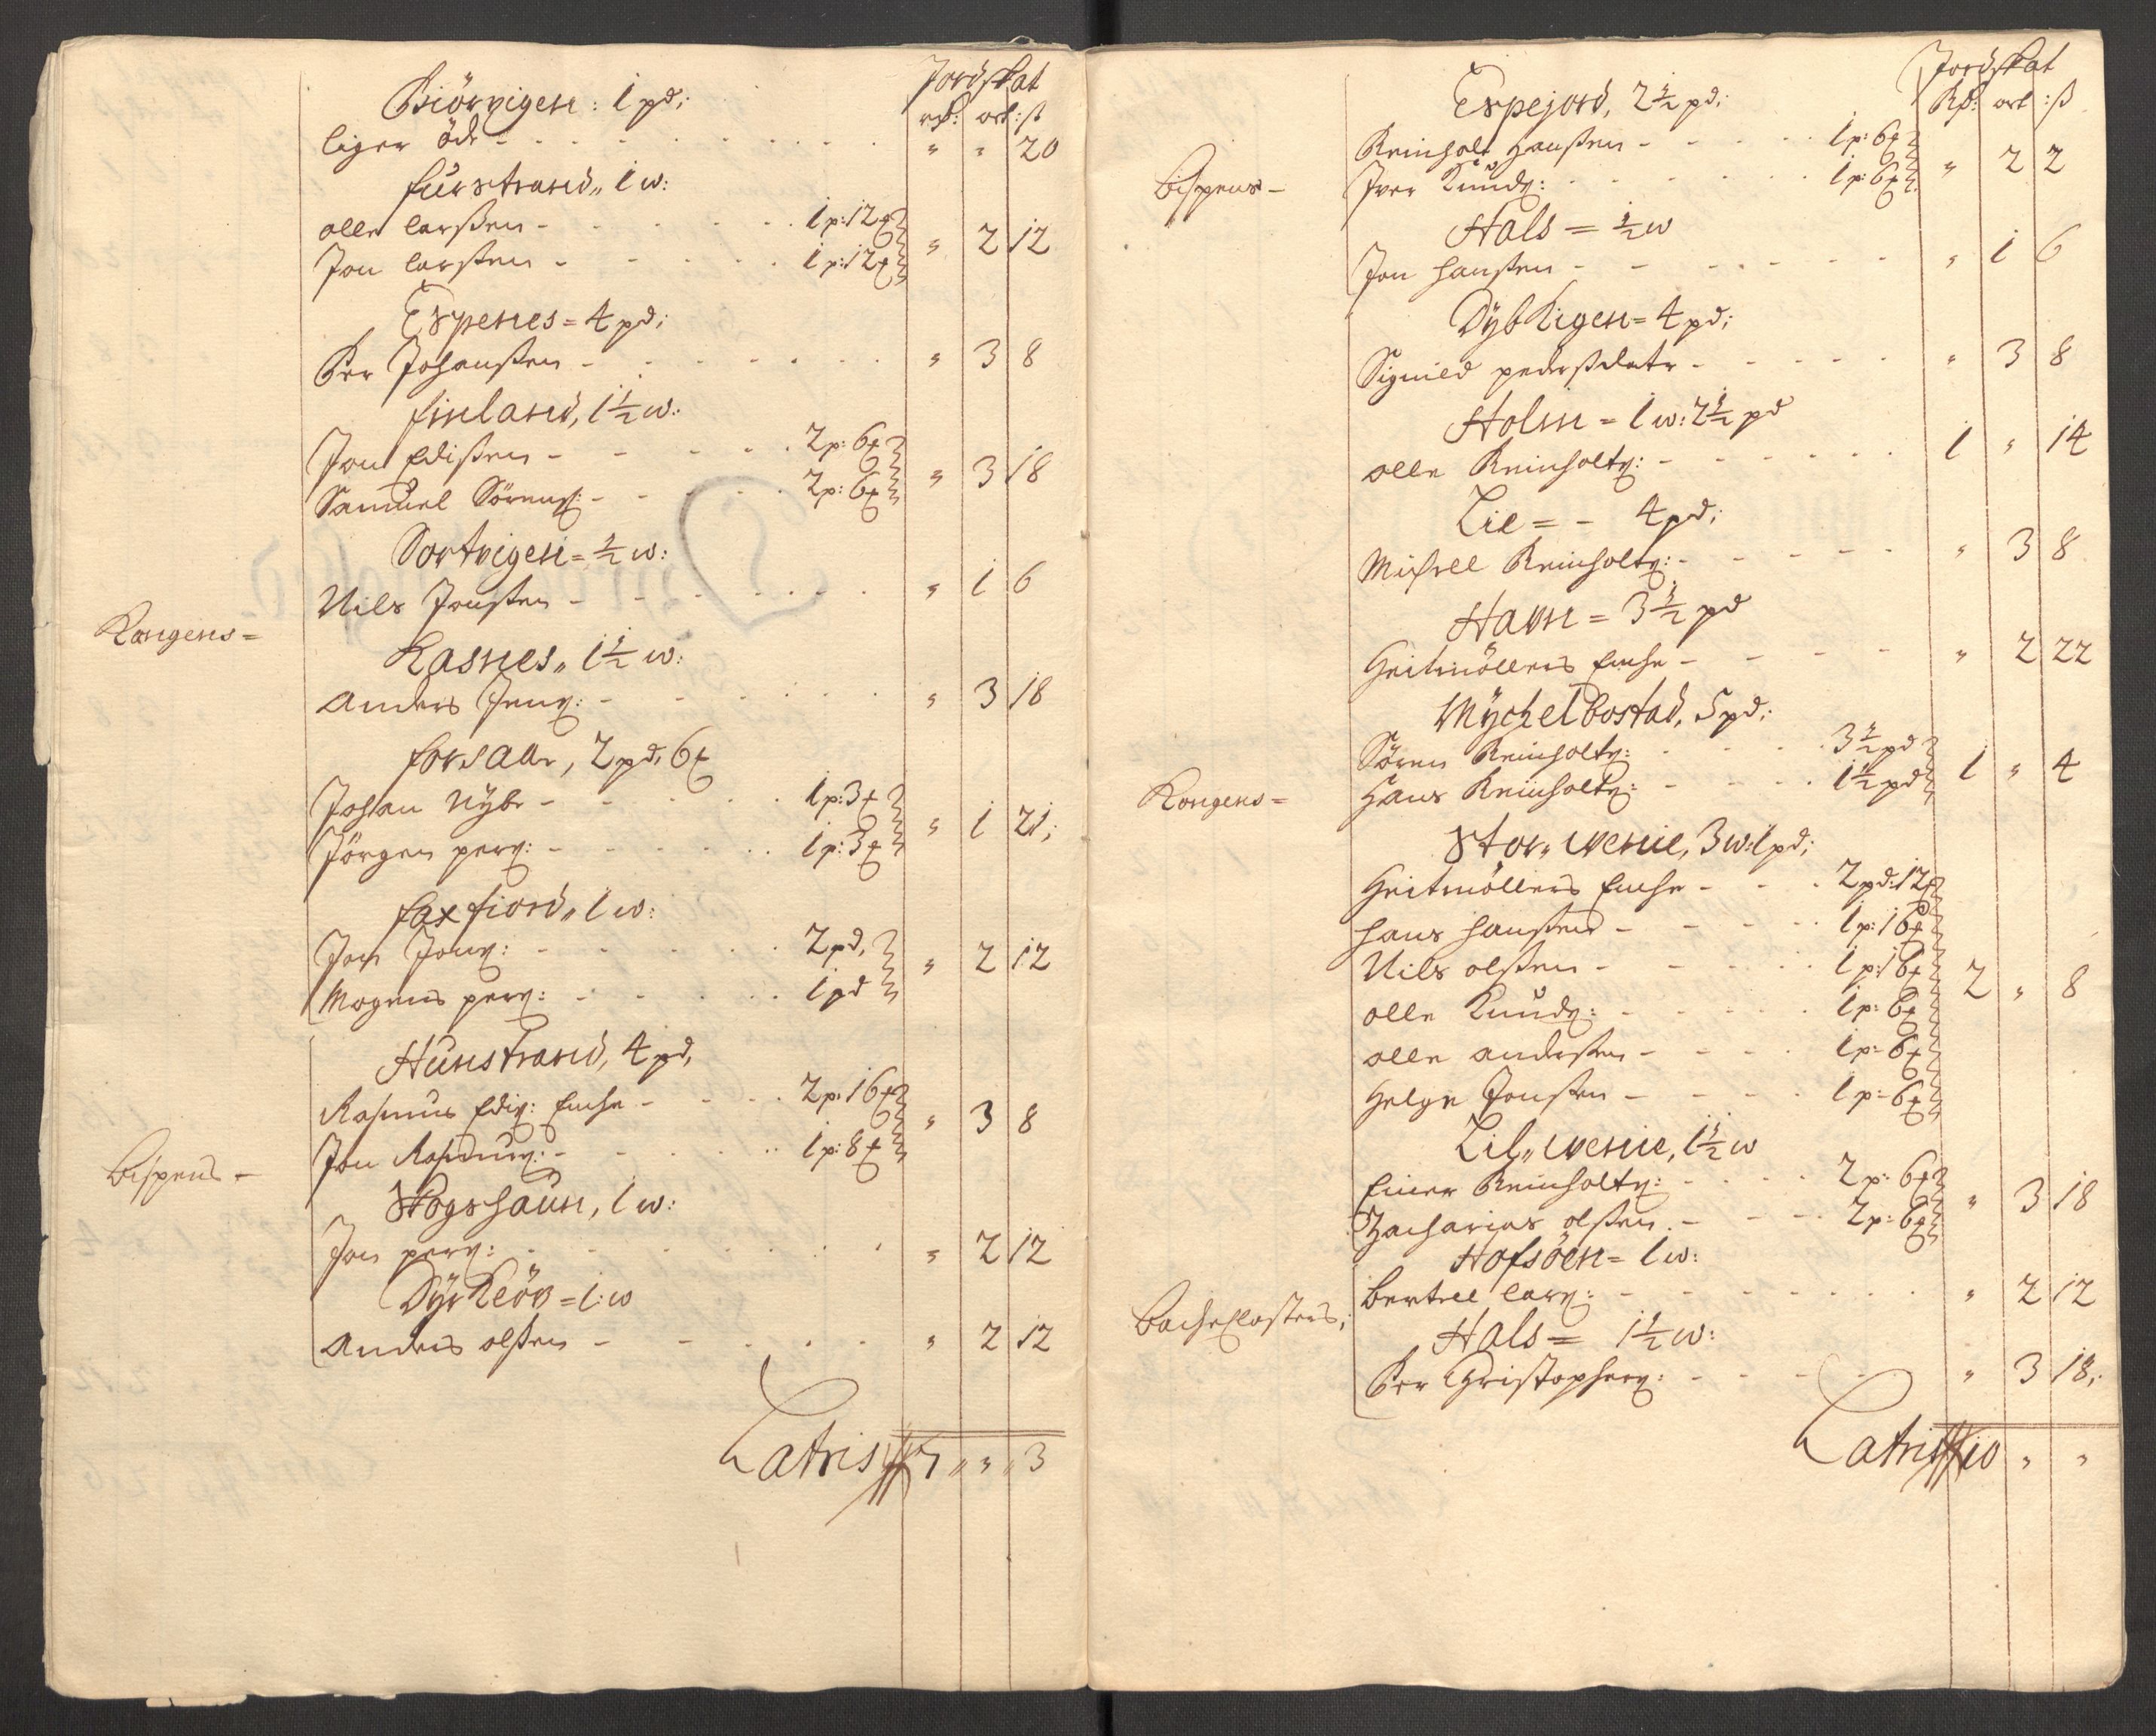 Jordskat
Biörvigen: 1 pd;
rd: ort: ß
liger öde - - - " " 20
furstrand„ 1 w:
olle larßen - - - 1 p: 12 ℔
Jon larßen - - - 1 p: 12 ℔ " 2 12
Espenes = 4 pd;
Per Johanßen - - - " 3 8
finland, 1½ w:
Jon Edißen - - - 2 p: 6 ℔
Samuel Sörenß: - - - 2 p: 6 ℔ " 3 18
Sortvigen = ½ w:
Nils Jonßen - - - " 1 6
Kongens =
Kasnes„ 1½ w:
Anders Jenß: - - - " 3 18
forsaae, 2 pd, 6 ℔
Johan Nybe - - - 1 p: 3 ℔
Jörgen perß: - - - 1 p: 3 ℔ " 1 21;
faxfiord„ 1 w:
Jon Jonß: - - - 2 pd,
Mogens perß: - - - 1 pd " 2 12
Hunstrand, 4 pd,
Rasmus Ediß: Enche - - - 2 p: 16 ℔
Jon Rasmuß: - - - 1 p: 8 ℔ " 3 8
bispens -
Skogshaun, 1 w:
Jon perß: - - - " 2 12
Dyrkeör = 1: w
Anders olßen - - - " 2 12
Latris 7 „ " „ 3
Jordskat
Espejord, 2½ pd;
Rd: ort: ß
Reinholt Hanßen - - - 1 p: 6 ℔
bispens -
Iver Knudß: - - - 1 p: 6 ℔ " 2 2
Hals = ½ w
Jon hanßen - - - " 1 6
Dybvigen = 4 pd;
Signild pedersdatr - - - " 3 8
Holm = 1 w: 2½ pd
olle Reinholtß: - - - 1 " 14
Lie = - 4 pd;
Michell Reinholtß: - - - " 3 8
Havn = 3½ pd
Geitmöllers Enche - - - " 2 22
Mychelbostad, 5 pd;
Sören Reinholtß: - - - 3½ pd
Kongens =
Hans Reinholtß: - - - 1½ pd 1 " 4
Stor„ wenie, 3 w: 1 pd;
Geitmöllers Enche - - - 2 pd: 12 ℔
hans hanßen - - - 1 p: 16 ℔
Nils olßen - - - 1 p: 16 ℔
olle Knudß: - - - 1 p: 6 ℔ 2 " 8
olle anderßen - - - 1 p: 6 ℔
Helge Jonßen - - - 1 p: 6 ℔
Lil„ wenie, 1½ w
Einer Reinholtß: - - - 2 p: 6 ℔
Zacharias olßen - - - 2 p: 6 ℔ " 3 18
Hofsöen = 1 w:
bertell larß: - - - " 2 12
bacheclosters;
Hals = 1½ w:
Per Christopherß: - - - " 3 18;
Latris 10 " "